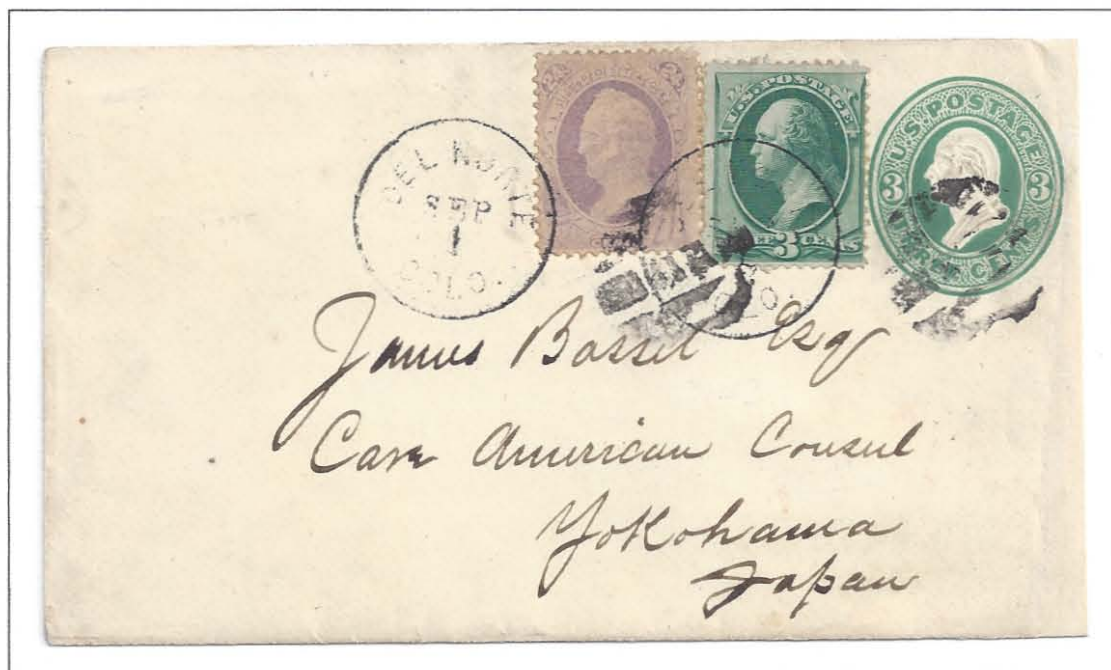 DEL NORTE
SEP
1
COLO.
U.S. POSTAGE
3 CENTS
U.S. POSTAGE
3 3
COLO.
James Bassel Esq
Care American Consul
Yokohama
Japan